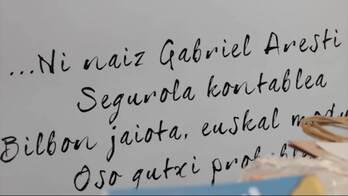 ...Ni naiz Gabriel Aresti
Segurola kontablea
Bilbon jaiota, euskal
Oso gutxi